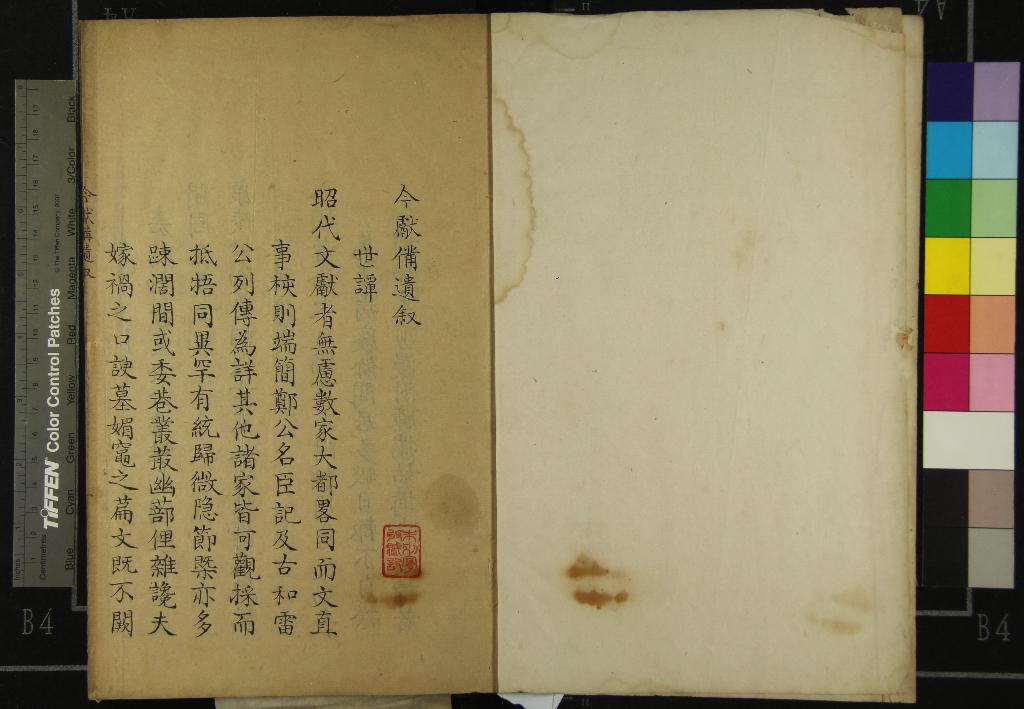 今獻備遺叙
世譚
昭代文獻者無慮數家大都畧同而文直
事核則端簡鄭公名臣記及古和雷
公列傳為詳其他諸家皆可觀採而
抵牾同異罕有統歸微隐節槩亦多
踈濶間或委巷叢菆幽蔀俚雜讒夫
嫁禍之口諛墓媚竈之篇文既不闕
今獻備遺叙
TIFFEN Color Control Patches
© The Tiffen Company, 2007
Inches
Centimetres
Blue
Cyan
Green
Yellow
Red
Magenta
White
3/Color
Black
B4
B4
A4
A4